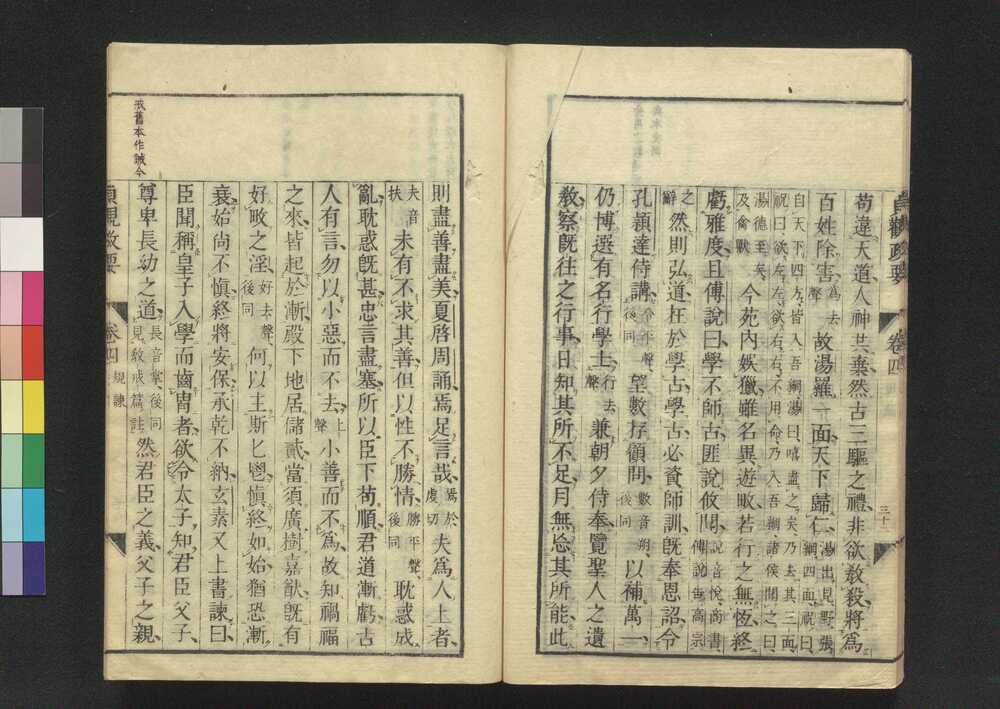 貞觀政要　卷四　三十
苟違天道人神共棄然古三驅之禮非欲教殺將爲
百姓除害爲去聲故湯羅一面天下歸仁湯出見野張網四面祝曰
自天下四方皆入吾網湯曰嘻盡之矣乃去其三面
祝曰欲左左欲右右不用命乃入吾網諸侯聞之曰
湯德至矣及禽獸今苑內娛獵雖名異遊畋若行之無恆終
虧雅度且傅說曰學不師古匪說攸聞說音悅尚書傅說告高宗
之辭然則弘道在於學古學古必資師訓旣奉恩詔令
孔穎達侍講令平聲後同望數存顧問數音朔後同以補萬一
仍博選有名行學士行去聲兼朝夕侍奉覽聖人之遺
教察旣往之行事日知其所不足月無忘其所能此
則盡善盡美夏啓周誦焉足言哉焉於虔切夫爲人上者
夫音扶未有不求其善但以性不勝情勝平聲後同耽惑成
亂耽惑旣甚忠言盡塞所以臣下苟順君道漸虧古
人有言勿以小惡而不去上聲小善而不爲故知禍福
之來皆起於漸殿下地居儲貳當須廣樹嘉猷旣有
好畋之淫好去聲後同何以主斯匕鬯愼終如始猶恐漸
衰始尚不愼終將安保承乾不納玄素又上書諫曰
臣聞稱皇子入學而齒冑者欲令太子知君臣父子
尊卑長幼之道長音掌後同見教戒篇註然君臣之義父子之親
戒舊本作誡今
貞觀政要　卷四　規諫